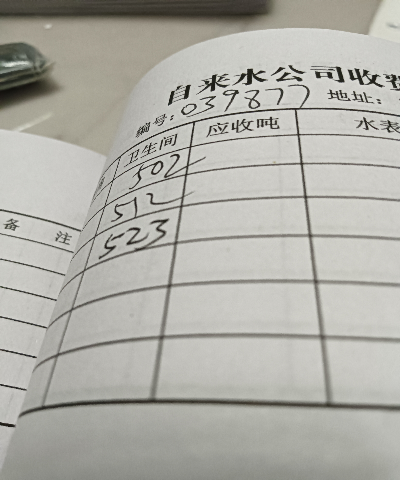 自来水公司收费
编号:039877 地址:
卫生间 应收吨 水表
502
512
523
备 注